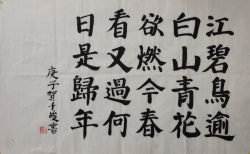 江碧鳥逾
白山青花
欲燃今春
看又過何
日是歸年
庚子賀手俊書